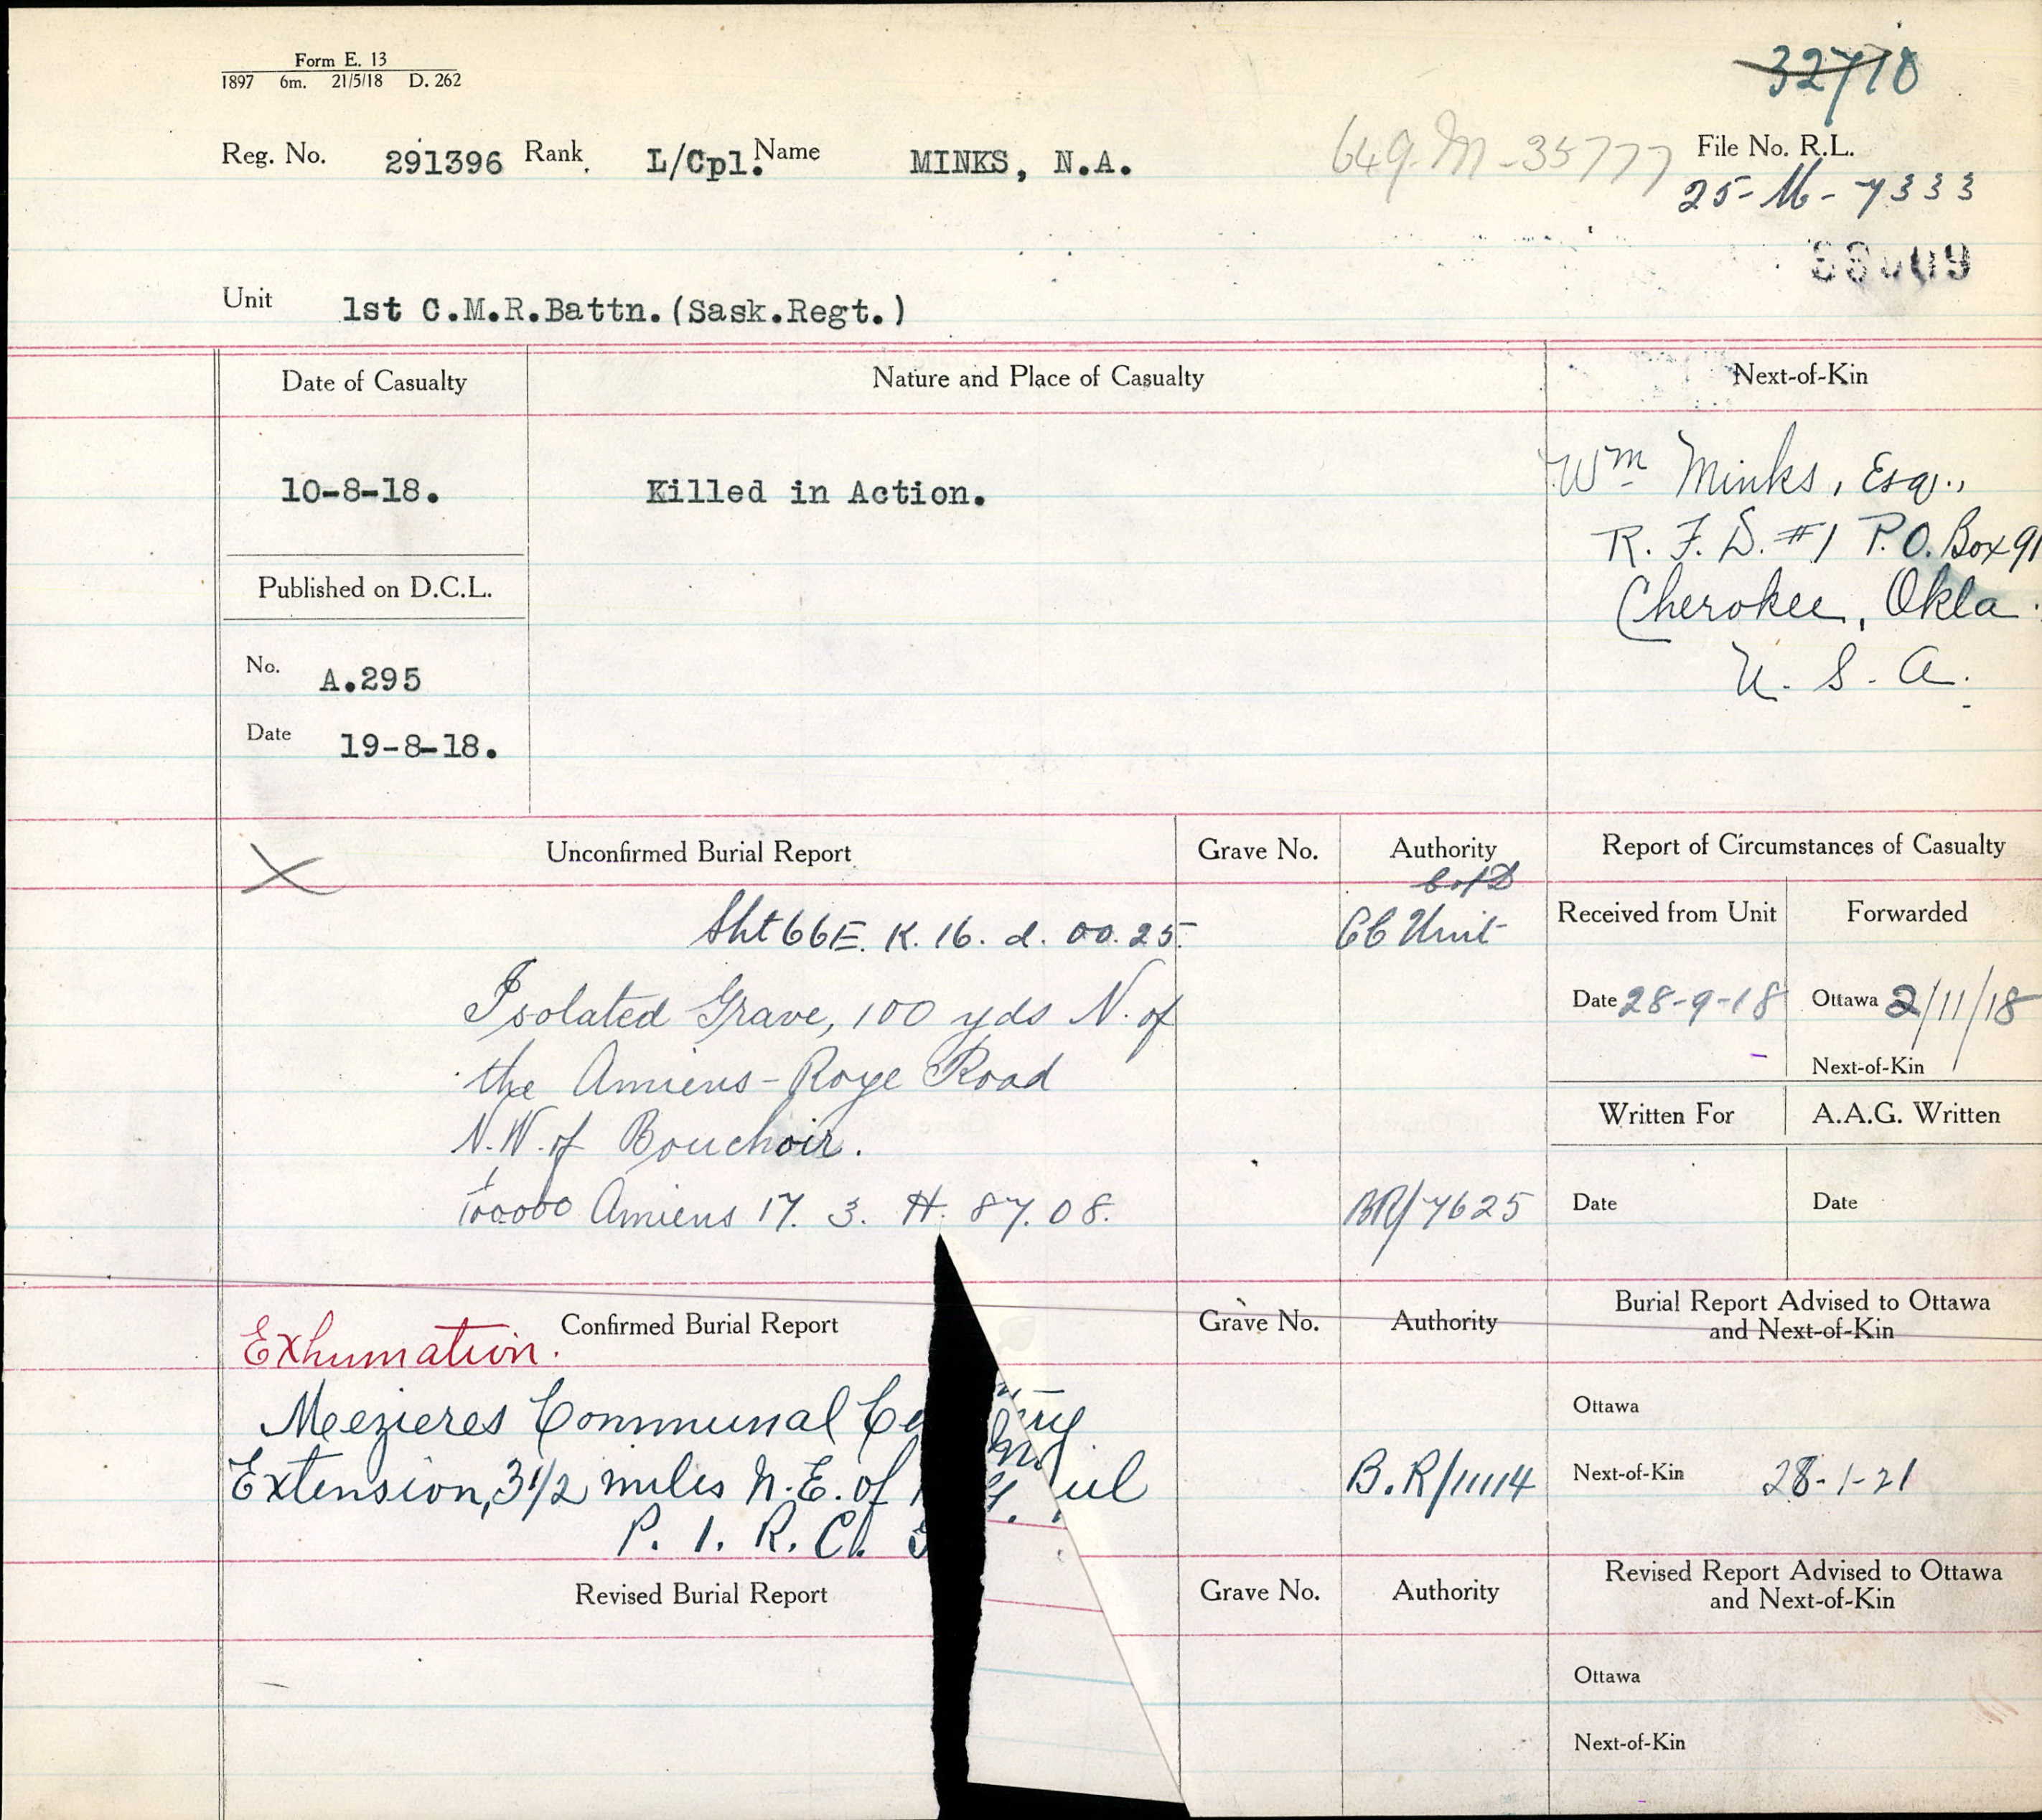 Form E. 13
1897 6m. 21/5/18 D. 262
32718
Reg. No. 291396 Rank L/Cpl. Name MINKS, N.A. 649-M-35777 File No. R.L.
25-M-7333
Unit 1st C.M.R.Battn.(Sask.Regt.)
Date of Casualty Nature and Place of Casualty Next-of-Kin
10-8-18. Killed in Action. Wm Minks, Esq.,
R. F. D. #1 P.O. Box 91
Published on D.C.L. Cherokee, Okla.
No. A.295 U. S. A.
Date 19-8-18.
Unconfirmed Burial Report Grave No. Authority Report of Circumstances of Casualty
Sht 66E. K. 16. d. 00. 25. Unit Received from Unit Forwarded
Isolated Grave, 100 yds N. of Date 28-9-18 Ottawa 2/11/18
the Amiens-Roye Road Next-of-Kin
N.W. of Bouchoir. Written For A.A.G. Written
1/100000 Amiens 17. 3. H. 87. 08. BR/7625 Date Date
Exhumation. Confirmed Burial Report Grave No. Authority Burial Report Advised to Ottawa
and Next-of-Kin
Meezieres Communal Ottawa
Extension, 3 1/2 miles N.E. of B.R/11114 Next-of-Kin 28-1-21
P. 1. R. C.
Revised Burial Report Grave No. Authority Revised Report Advised to Ottawa
and Next-of-Kin
Ottawa
Next-of-Kin